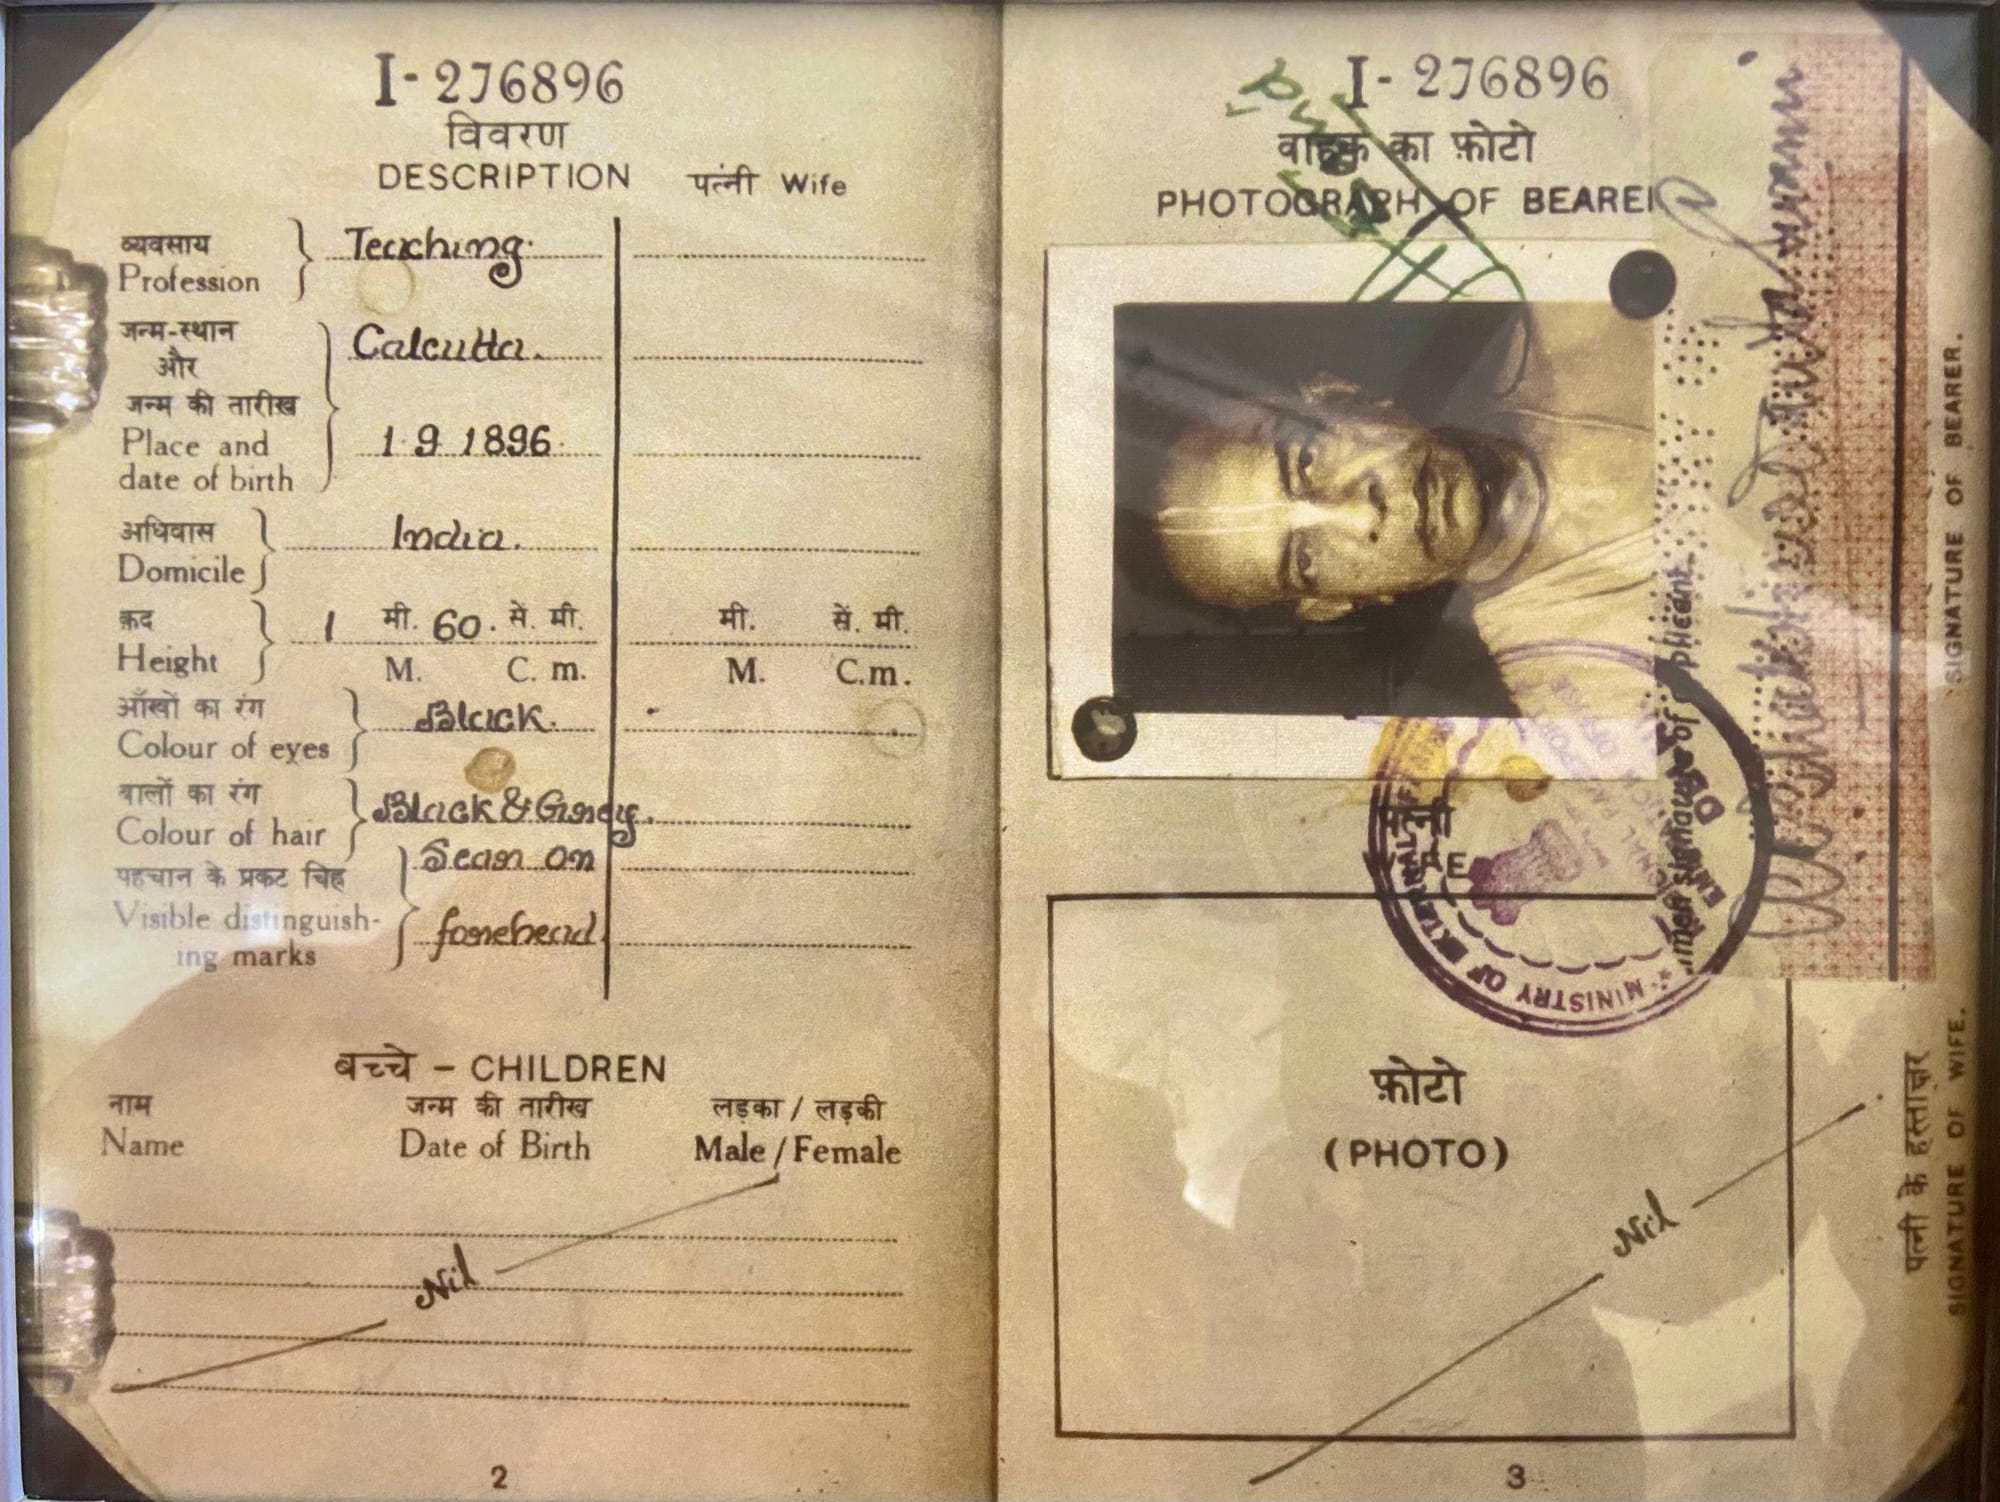 I-276896
विवरण
DESCRIPTION
पत्नी Wife
व्यवसाय
Profession
Teaching.
जन्म-स्थान
और
जन्म की तारीख
Place and
date of birth
Calcutta.
1.9.1896.
अधिवास
Domicile
India.
क़द
Height
1 मी. 60. सें. मी.
M. C. m.
मी. सें. मी.
M. C.m.
आँखों का रंग
Colour of eyes
Black.
बालों का रंग
Colour of hair
Black & Grey.
पहचान के प्रकट चिह्न
Visible distinguish-
ing marks
Scar on
forehead.
बच्चे - CHILDREN
नाम जन्म की तारीख लड़का / लड़की
Name Date of Birth Male / Female
Nil
2
I-276896
वाहक का फ़ोटो
PHOTOGRAPH OF BEARER
SIGNATURE OF BEARER.
signature of
MINISTRY OF EXTERNAL AFFAIRS
पत्नी
फ़ोटो
(PHOTO)
Nil
पत्नी के हस्ताक्षर
SIGNATURE OF WIFE.
3